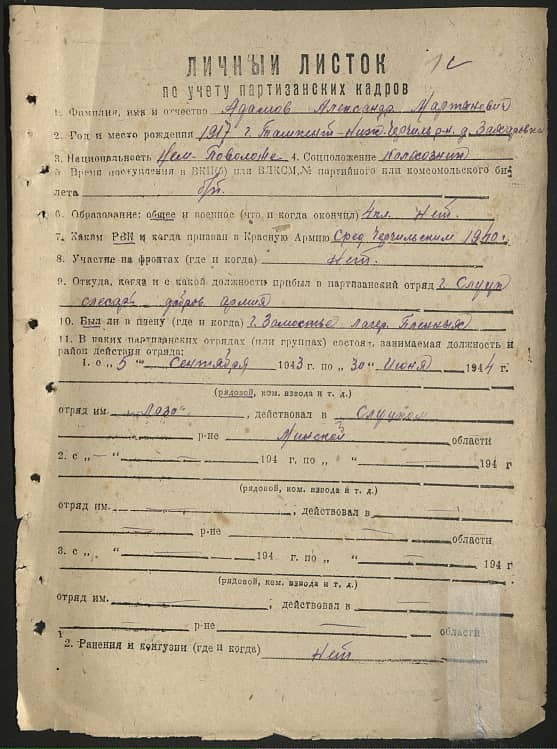 ЛИЧНЫЙ ЛИСТОК
по учету партизанских кадров
1. Фамилия, имя и отчество Адамов Александр Мартынович
2. Год и место рождения 1917 г. Ташкент-
3. Национальность Нем-Поволжье 4. Соцположение колхозник
5 Время поступления в ВКП(б) или ВЛКСМ, № партийного или комсомольского би-
лета б/п.
6. Образование: общее и военное (что и когда окончил) 4кл. Нет.
7. Каким РВК и когда призван в Красную Армию Сред Чирчикским 1940 г.
8. Участие на фронтах (где и когда) Нет.
9. Откуда, когда и с какой должности прибыл в партизанский отряд г. Слуцк
слесарь добров армия
10. Был ли в плену (где и когда) г. Замостье лагер. Пленных
11. В каких партизанских отрядах (или группах) состоял, занимаемая должность и
район действия отряда:
1. с „ 5 " сентября 1943 г. по „ 30 " июня 1944 г.
(рядовой, ком. взвода и т. д.)
отряд им. Лазо , действовал в Слуцком
р-не Минской области
2. с „ " 194 г. по „ " 194 г
(рядовой, ком. взвода и т. д.)
отряд им. , действовал в
р-не области
3. с „ " 194 г. по „ " 194 г
(рядовой, ком. взвода и т. д.)
отряд им. , действовал в
р-не области
2. Ранения и контузии (где и когда) нет